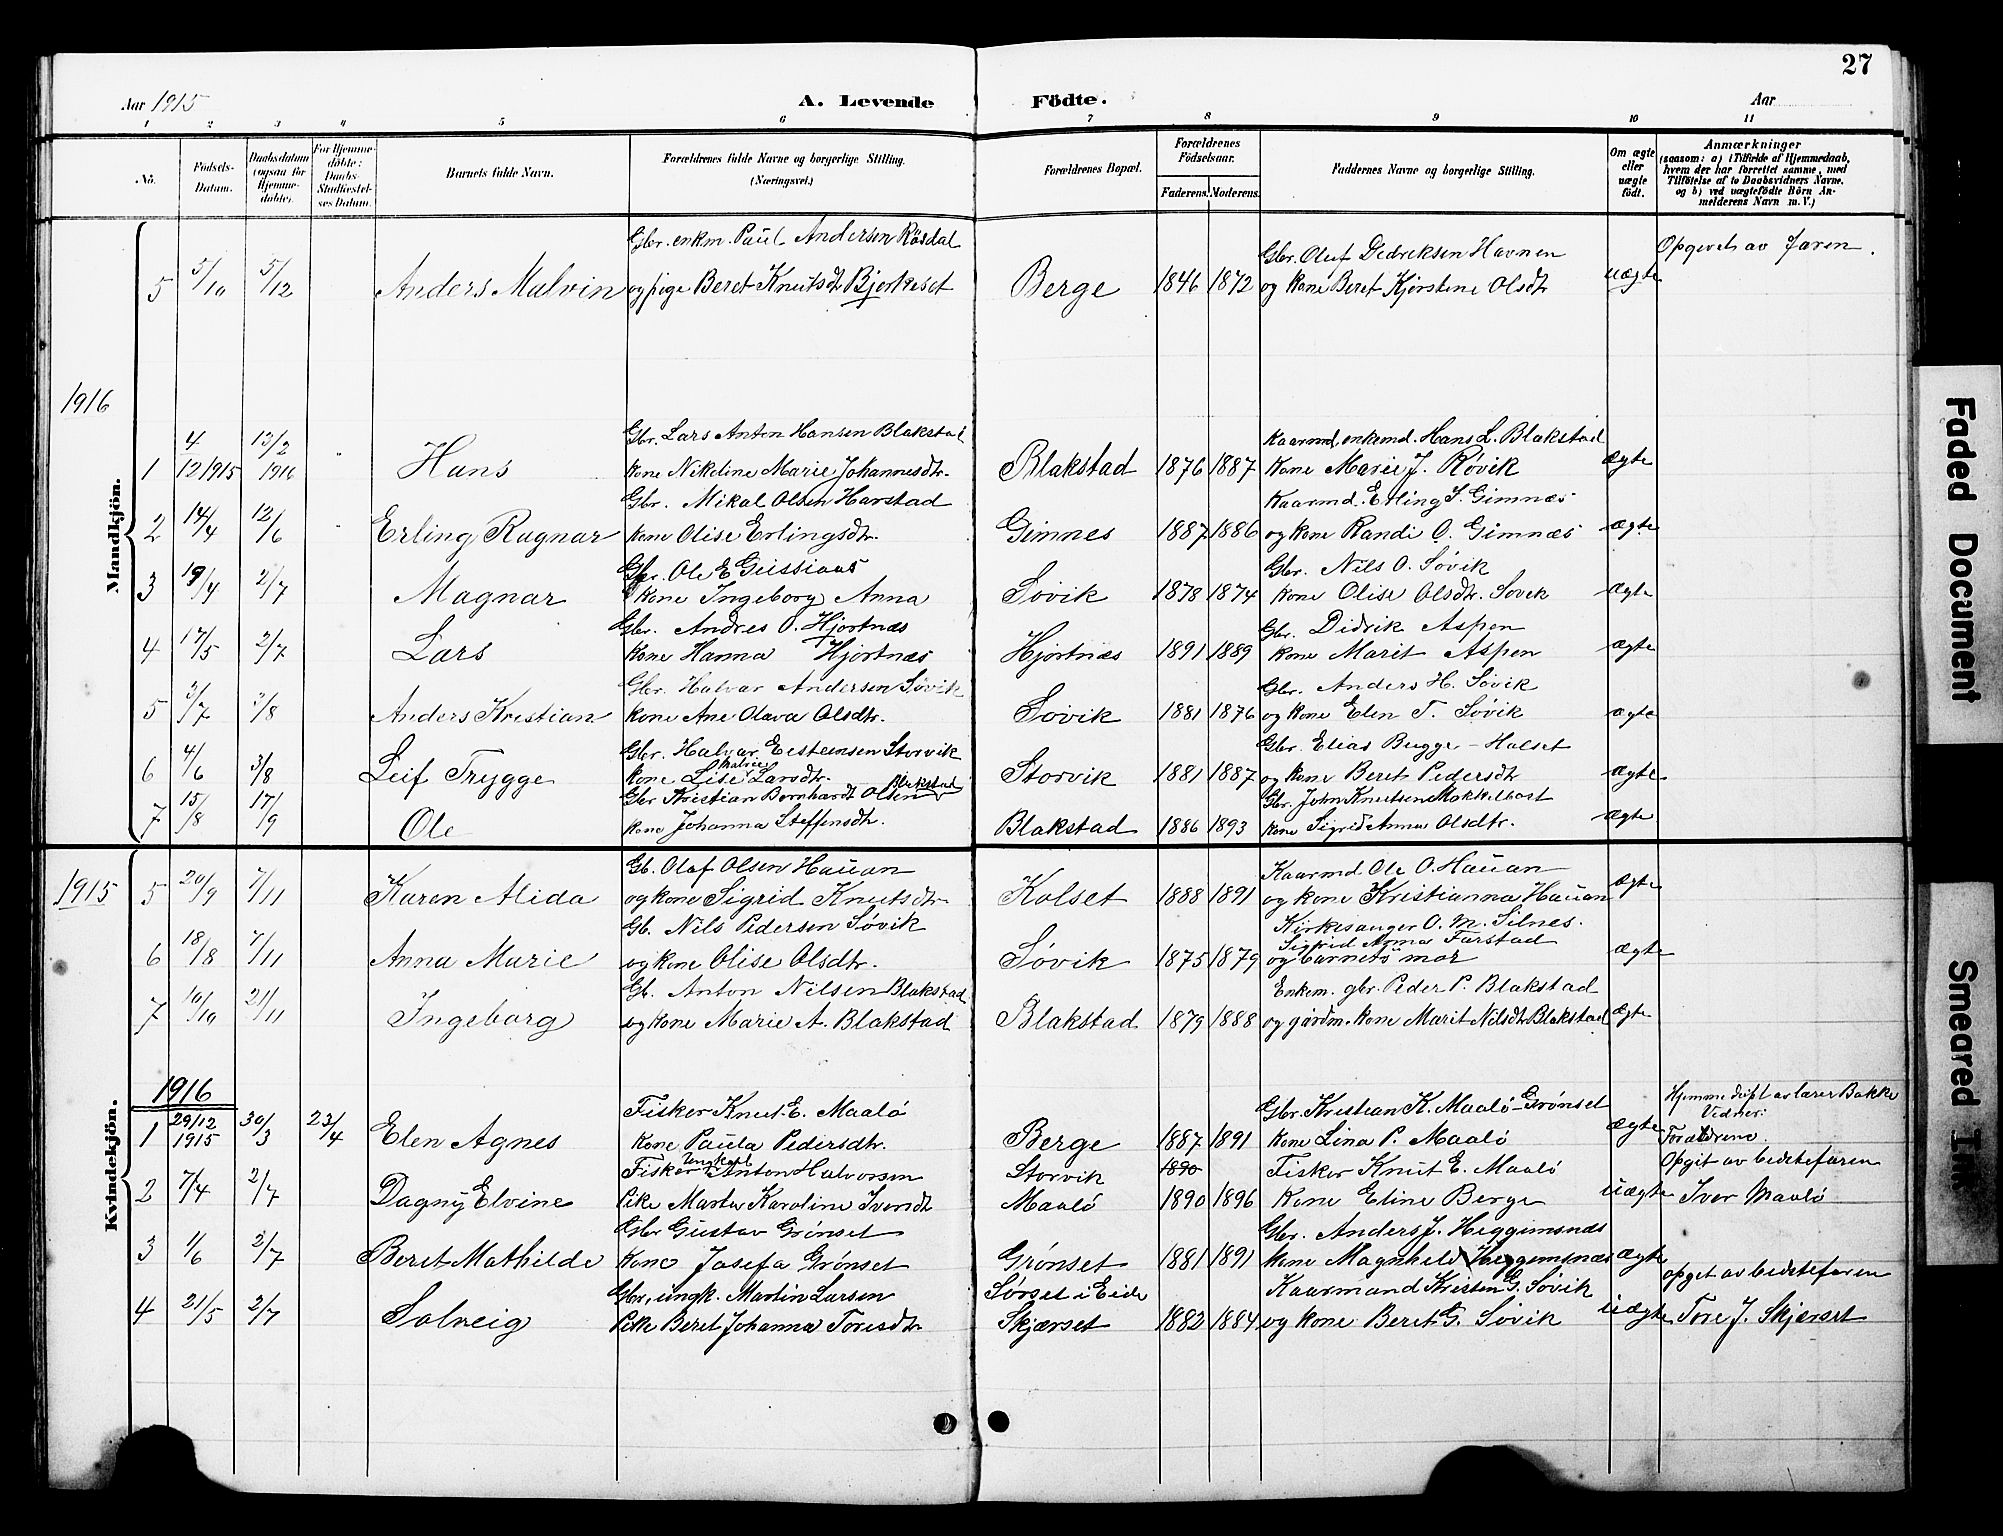 27
Aar 1915
A. Levende Födte.
Aar
1 2 3 4 5 6 7 8 9 10 11
No.
Födsels-Datum.
Daabsdatum (ogsaa for Hjemmedöbte).
For Hjemmedöbte: Daabs-Stadfæstelses Datum.
Barnets fulde Navn.
Forældrenes fulde Navne og borgerlige Stilling. (Næringsvei.)
Forældrenes Bopæl.
Forældrenes Födselsaar.
Faderens. Moderens.
Faddernes Navne og borgerlige Stilling.
Om ægte eller uægte födt.
Anmærkninger
(saasom: a) i Tilfælde af Hjemmedaab, hvem der har forrettet samme, med Tilföielse af to Daabsvidners Navne, og b) ved uægtefödte Börn Anmelderens Navn m. V.)
Mandkjön.
Gbr. enkm. Paul Andersen Rösdal Gbr. Oluf Dedreksen Havnen Opgivet av faren.
5 5/10 5/12 Anders Malvin og pige Beret Knutsdt Bjerkeset Berge 1846 1872 og kone Beret Kjerstene Olsdtr uægte
1916
4 13/2 Gbr. Lars Anton Hansen Blakstad Kaarmd. enkemd. Hans L. Blakstad
1 12 1915 1916 Hans kone Nikoline Marie Johannesdtr. Blakstad 1876 1887 Kone Marie J. Røvik ægte
Gbr. Mikal Olsen Harstad Kaarmd. Erling I. Gimnæs
2 14/4 12/6 Erling Ragnar kone Olise Erlingsdtr. Gimnes 1887 1886 og kone Randi O. Gimnæs ægte
Gbr. Ole E Gussiaas Gbr. Nils O. Søvik
3 19/4 2/7 Magnar kone Ingeborg Anna Søvik 1878 1874 kone Olise Olsdtr. Søvik ægte
Gbr. Andres O. Hjortnæs Gbr. Didrik Aspen
4 17/5 2/7 Lars kone Hanna Hjortnæs Hjortnæs 1891 1889 kone Marit Aspen ægte
Gbr. Halvar Andersen Søvik Gbr. Anders H. Søvik
5 3/7 3/8 Anders Kristian kone Ane Olava Olsdtr. Søvik 1881 1876 og kone Elen T. Søvik ægte
Gbr. Halvar Eesteensen Storvik Gbr. Elias Bugge - Holset
6 4/6 3/8 Leif Trygge kone Lise Marie Larsdtr. Storvik 1881 1887 og kone Beret Pedersdt ægte
Gbr Kristian Bernhardt Olsen Blakstad Gbr. John Knutsen Mokkelbost
7 15/8 17/9 Ole kone Johanna Steffensdtr. Blakstad 1886 1893 kone Sigrid Anna Olsdtr. ægte
Kvindekjön.
1915
Gb. Olaf Olsen Hauan Kaarmd Ole O. Hauan
5 20/9 7/11 Karen Alida og kone Sigrid Knutsdtr Kolset 1888 1891 og kone Kristianna Hauan ægte
Gb. Nils Pedersen Søvik Kirkesanger O. M. Silnes.
Sigrid Anna Farstad
6 18/8 7/11 Anna Marie og kone Olise Olsdtr. Søvik 1875 1879 og barnets mor ægte
Gb. Anton Nilsen Blakstad Enkem. gbr. Peder P. Blakstad
7 10/10 21/11 Ingeborg og kone Marie A. Blakstad Blakstad 1879 1888 og gårdm. kone Marit Nilsdt Blakstad ægte
1916
Fisker Knut E. Maalö Gbr. Kristian K. Maalö-Grönset Hjemmedøpt av lærer Bakke Vidner:
1 29/12 1915 30/3 23/4 Elen Agnes kone Paula Pedersdtr. Berge 1887 1891 kone Lina P. Maalö ægte Forældrene.
Fisker Ungkarl Anton Halvorsen Storvik 1890 Fisker Knut E. Maalö Opgit av bedstefaren
2 7/4 2/7 Dagny Elvine Pike Marta Karoline Iversdt Maalö 1890 1896 Kone Eline Berge uægte Iver Maalö
Gbr Gustav Grønset Gbr. Anders J. Heggemsnæs
3 1/6 2/7 Beret Mathilde Kone Josefa Grønset Grønset 1881 1891 kone Magnhild Heggemsnæs ægte
Gbr. ungk. Martin Larsen Sørset i Eide Kaarmand Kristen G. Søvik opget av bedstefaren
4 21/5 2/7 Solveig Pike Beret Johanna Toresdtr Skjærset 1882 1884 og kone Beret G. Søvik uægte Tore J. Skjerset
Faded Document
Smeared Ink